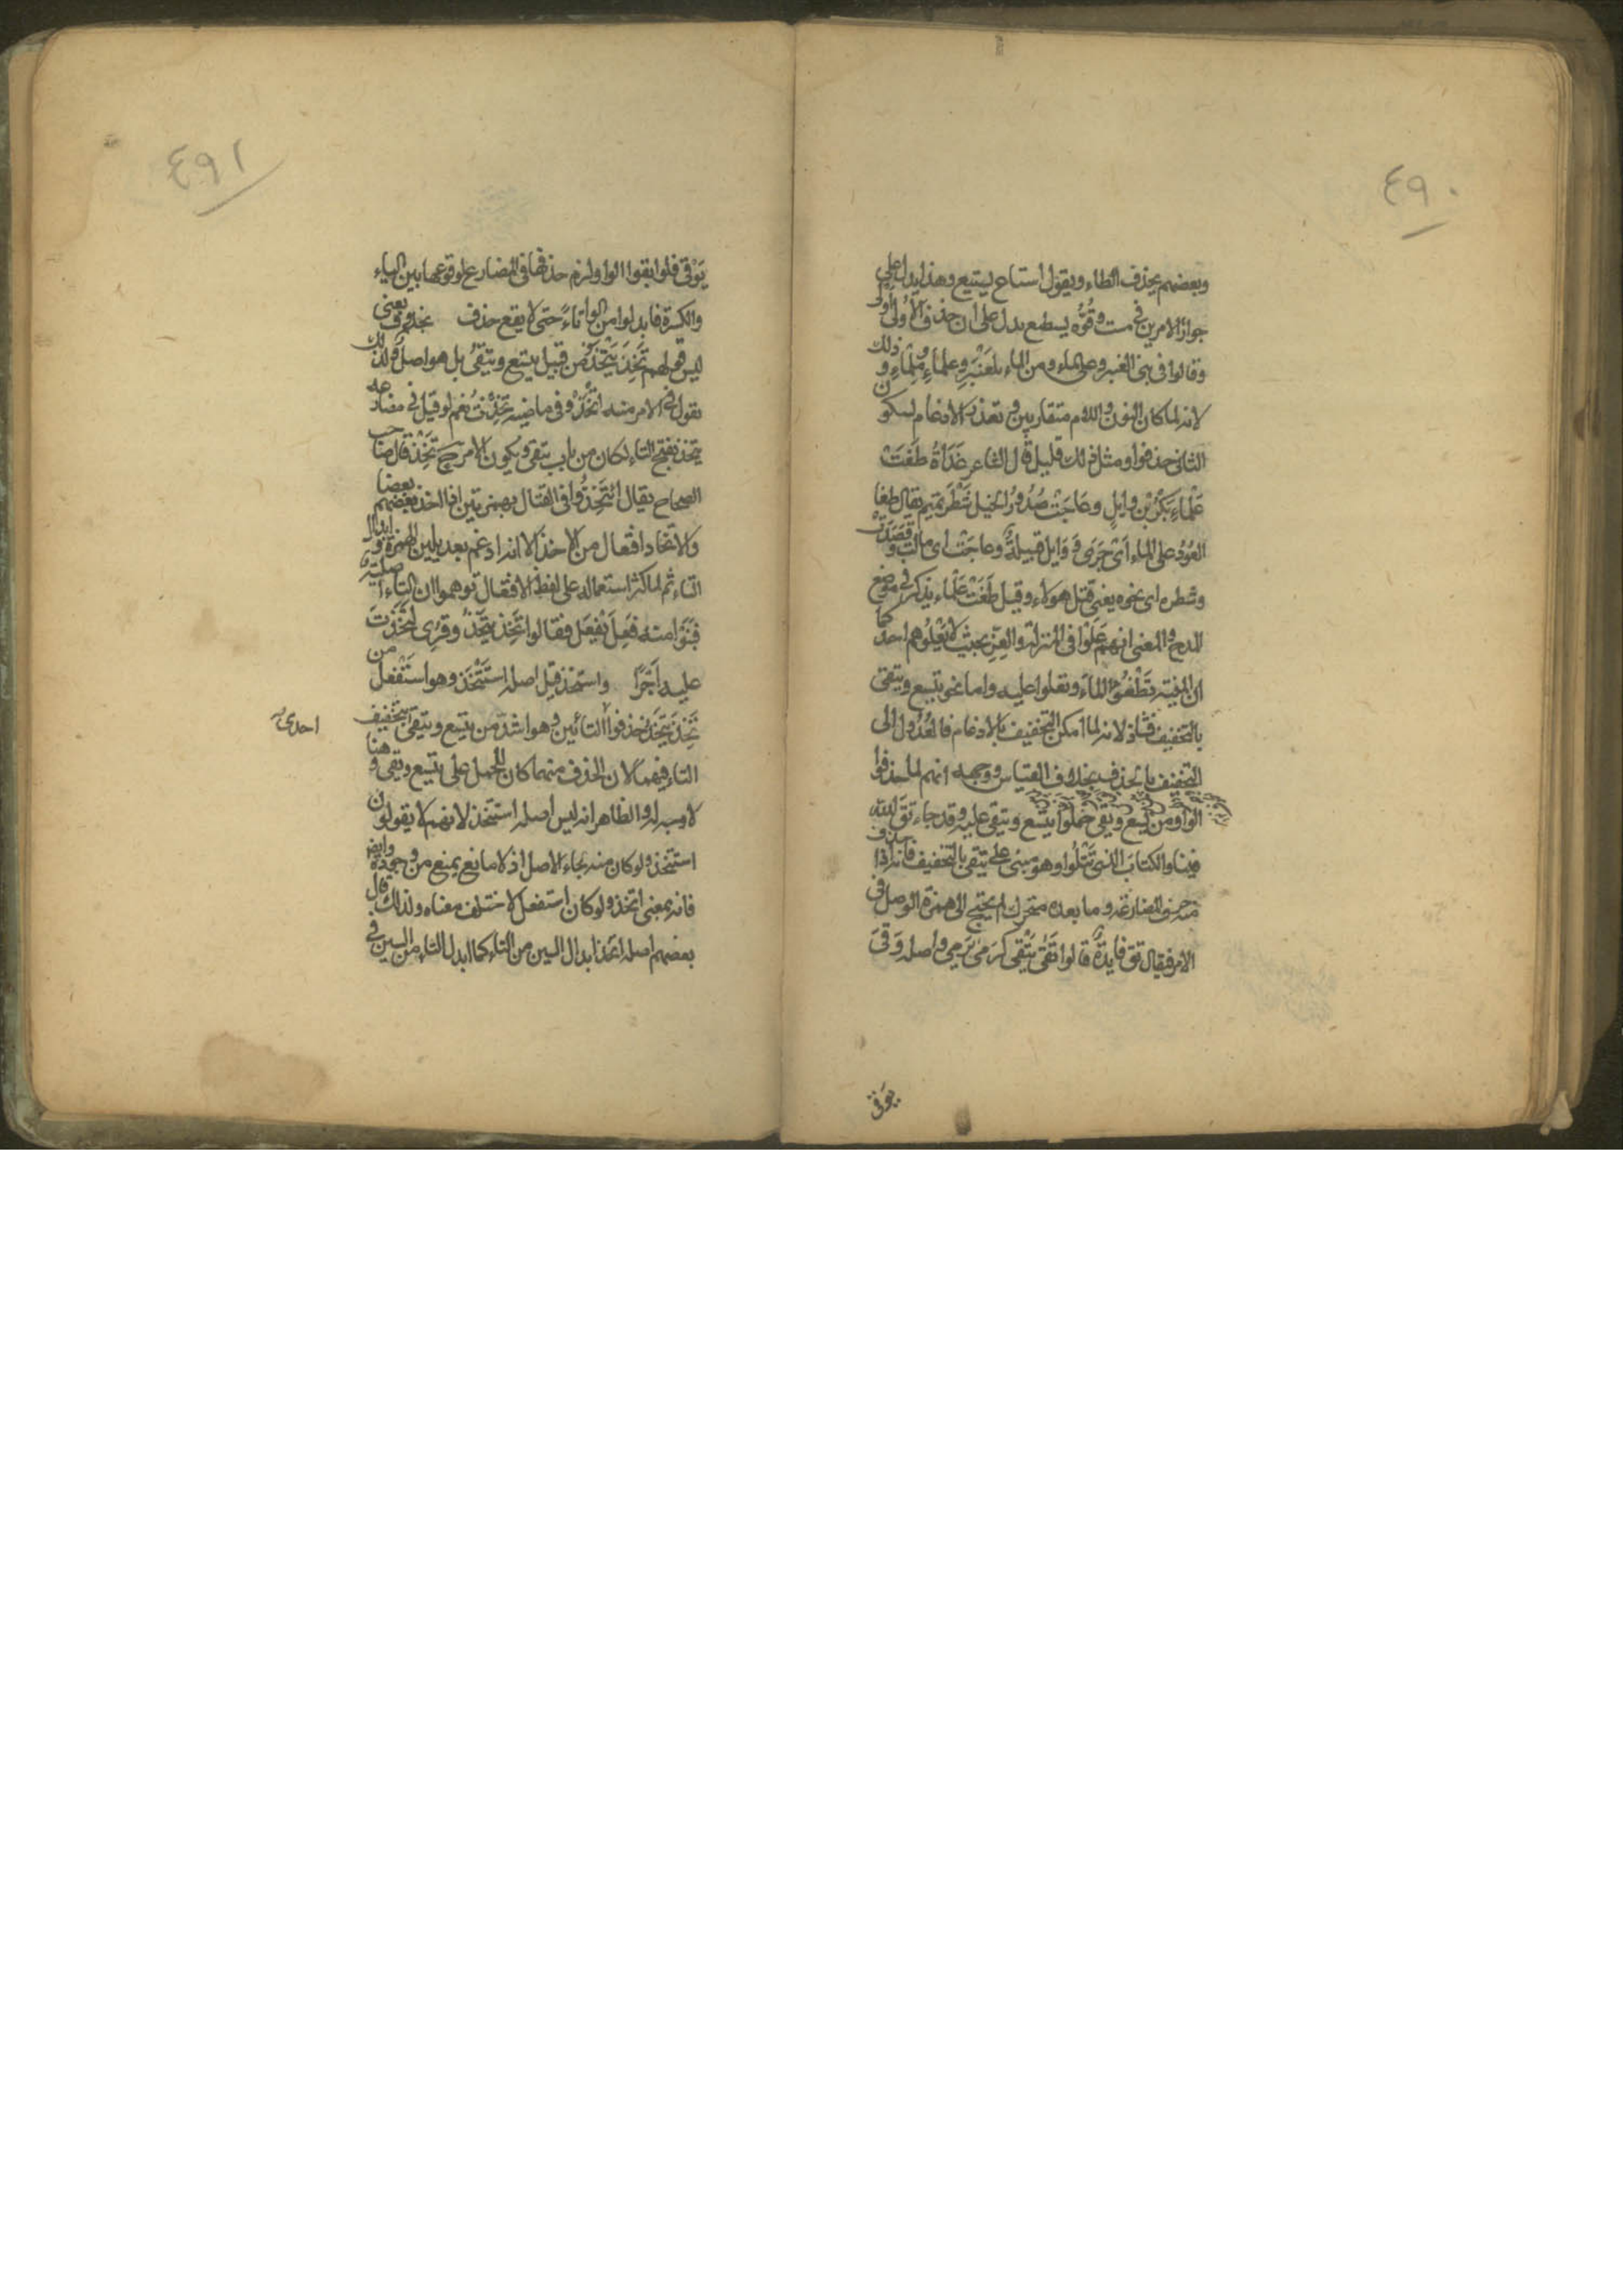 ٤٩٠
وبعضهم يحذف الطاء ويقول استاع يستيع وهذا يدل على
جواز الامرين في مست وقوله يسطع يدل على ان حذف الاولى اولى
وقالوا في بني العنبر وعلى الماء ومن الماء بلعنبر وعلماء وملماء وذلك
لانه لما كان النون واللام متقاربين وتعذر الادغام لسكون
الثاني حذفوا ومثل ذلك قليل قال الشاعر غَدَاةَ طَفَتْ
عَلْمَاءِ بَكْرُ بْنُ وايلٍ وعَاجَتْ صُدُورُ الخيل شَطْرَ تميم يقال طفا
العُودُ على الماء اى جَرَى وَوَايل قبيلة وعاجَتْ اى مالت وقصدت
وشطره اى نحوه يعنى قتل هولاء وقيل طَفَتْ عَلْمَاء يذكر في موضع
المدح والمعنى انهم عَلَوْا في المنزلة والعِزّ بحيث لا يَعْلُوهم احد كما
ان الميتة تَطْفُو الماءَ وتعلوا عليه واما نحو يتسع ويتقى
بالتخفيف فشاذ لانه لما امكن التخفيف بالادغام فالعُدُول الى
التخفيف بالحذف بخلاف القياس ووجهه انهم لما حذفوا
الواو من يسع ويقى حَمَلُوا يتسع ويتقى عليه وقد جاء تَقِ الله
فينا والكتابَ الذى تَتْلُوا وهو مبنى على يتقى بالتخفيف فانه اذا حذف
منه حرف المضارعة وما بعده متحرك لم يحتج الى همزة الوصل في
الامر فيقال تق فايدة قالوا تَقَى يَتْقِى كرَمَى يَرْمِى واصله وَقَىَ
يوقى
٤٩١
يَوْقى فلو ابقوا الواو لزم حذفها في المضارع لوقوعها بين الياء
والكسرة فابدلوا من الواو تاءً حتى لا يقع حذف بخدوف يعنى
ليس قولهم تَخِذَ يَتْخَذُ من قبيل يتسع ويتقى بل هو اصل ولذلك
تقول في الامر منه اتْخَذْ وفى ماضيه تَخِذْتُ نعم لو قيل في مضارعه
يتخذ بفتح التاء لكان من باب يتقى ويكون الامر ح تَخِذْ قال صاحب
الصحاح يقال ائتَخَذُوا في القتال بهمزتين اذا اخذ بعضهم بعضا
والاتخاذ افتعال من الاخذ الا انه ادغم بعد تليين الهمزة وابدال
التاء ثم لما كثر استعماله على لفظ الافتعال توهموا ان التاء اصلية
فبَنَوْا منه فَعِلَ يَفْعَل فقالوا تَخِذَ يَتْخَذُ وقرى لَتَخِذْتَ
عليه اَجْرًا واستخذ قيل اصله اسْتَتْخَذ وهو اسْتَفْعل من
تَخِذَ يَتْخَذُ حذفوا التائين وهو اشدّ من يتسع ويتقى بتخفيف
احدى
التاء فيهما لان الحذف منهما كان للحمل على يتسع ويقى وهنا
لا وجه له والظاهر انه ليس اصله استتخذ لانهم لا يقولون
استتخذ ولو كان منه لجاء الاصل اذ لا مانع يمنع من وجوده وايضا
فانه بمعنى اتخذ ولو كان استفعل لاختلف معناه ولذلك قال
بعضهم اصله اتخذ ابدال السين من التاء كما ابدل التاء من السين في